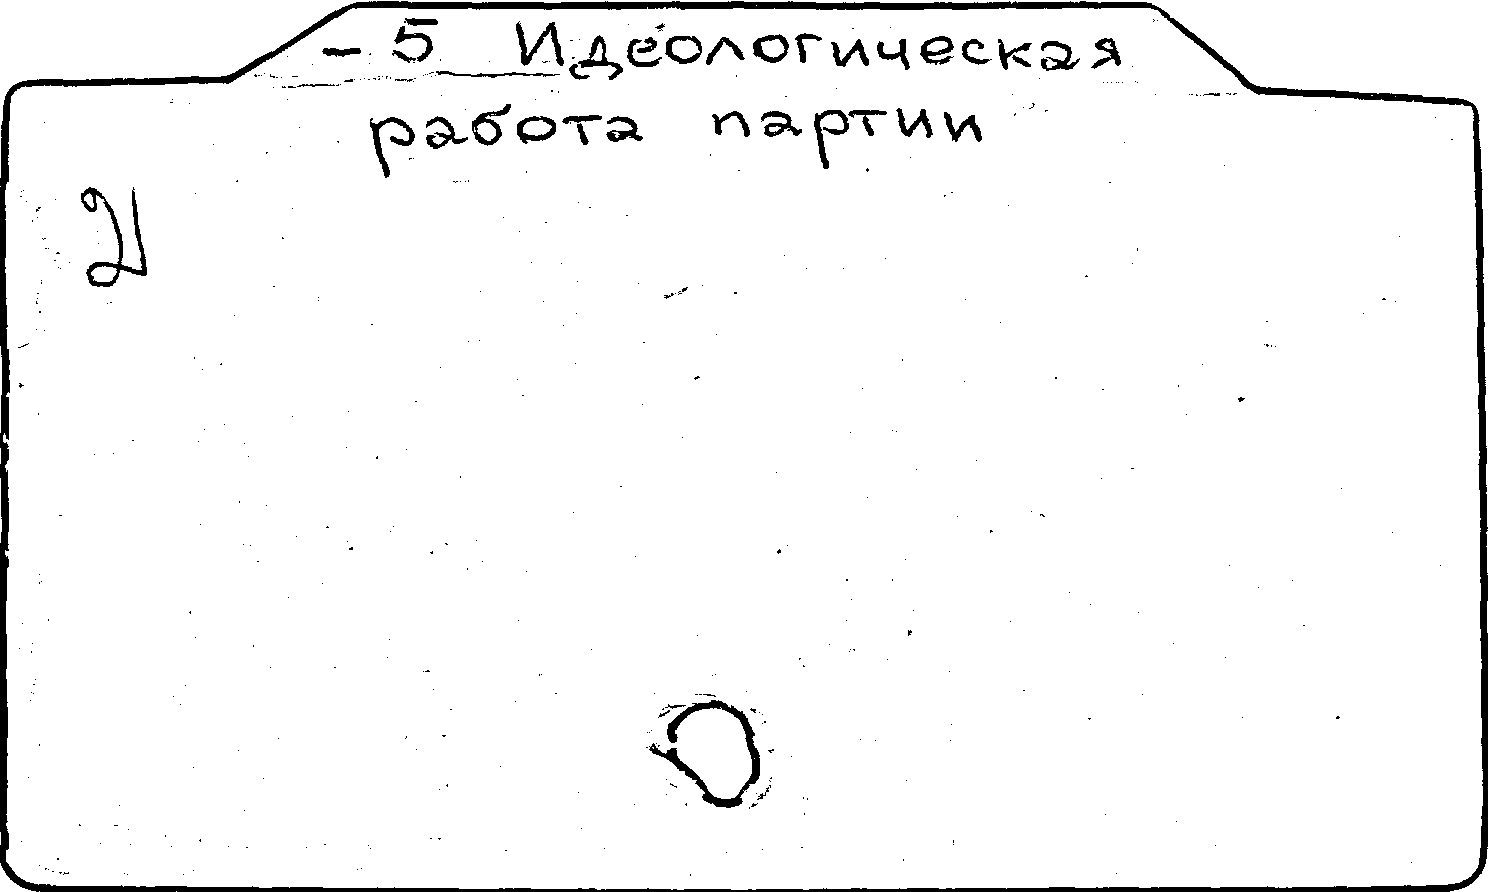 - 5 Идеологическая
работа партии